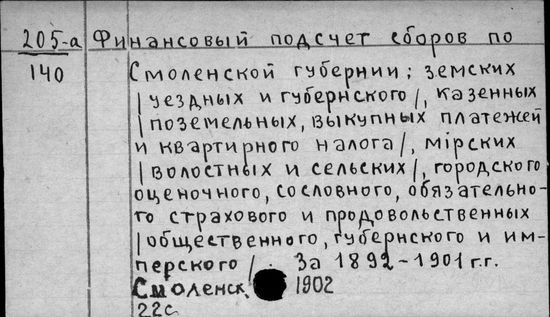 205-а Финансовый подсчет сборов по
140 Смоленской губернии; земских
/уездных и губернского/, казенных
/поземельных, выкупных платежей
и квартирного налога/, мірских
/волостных и сельских/, городского
оценочного, сословного, обязательно-
го страхового и продовольственных
/общественного, губернского и им-
перского/. За 1892-1901 г.г.
Смоленск 1902
22с.